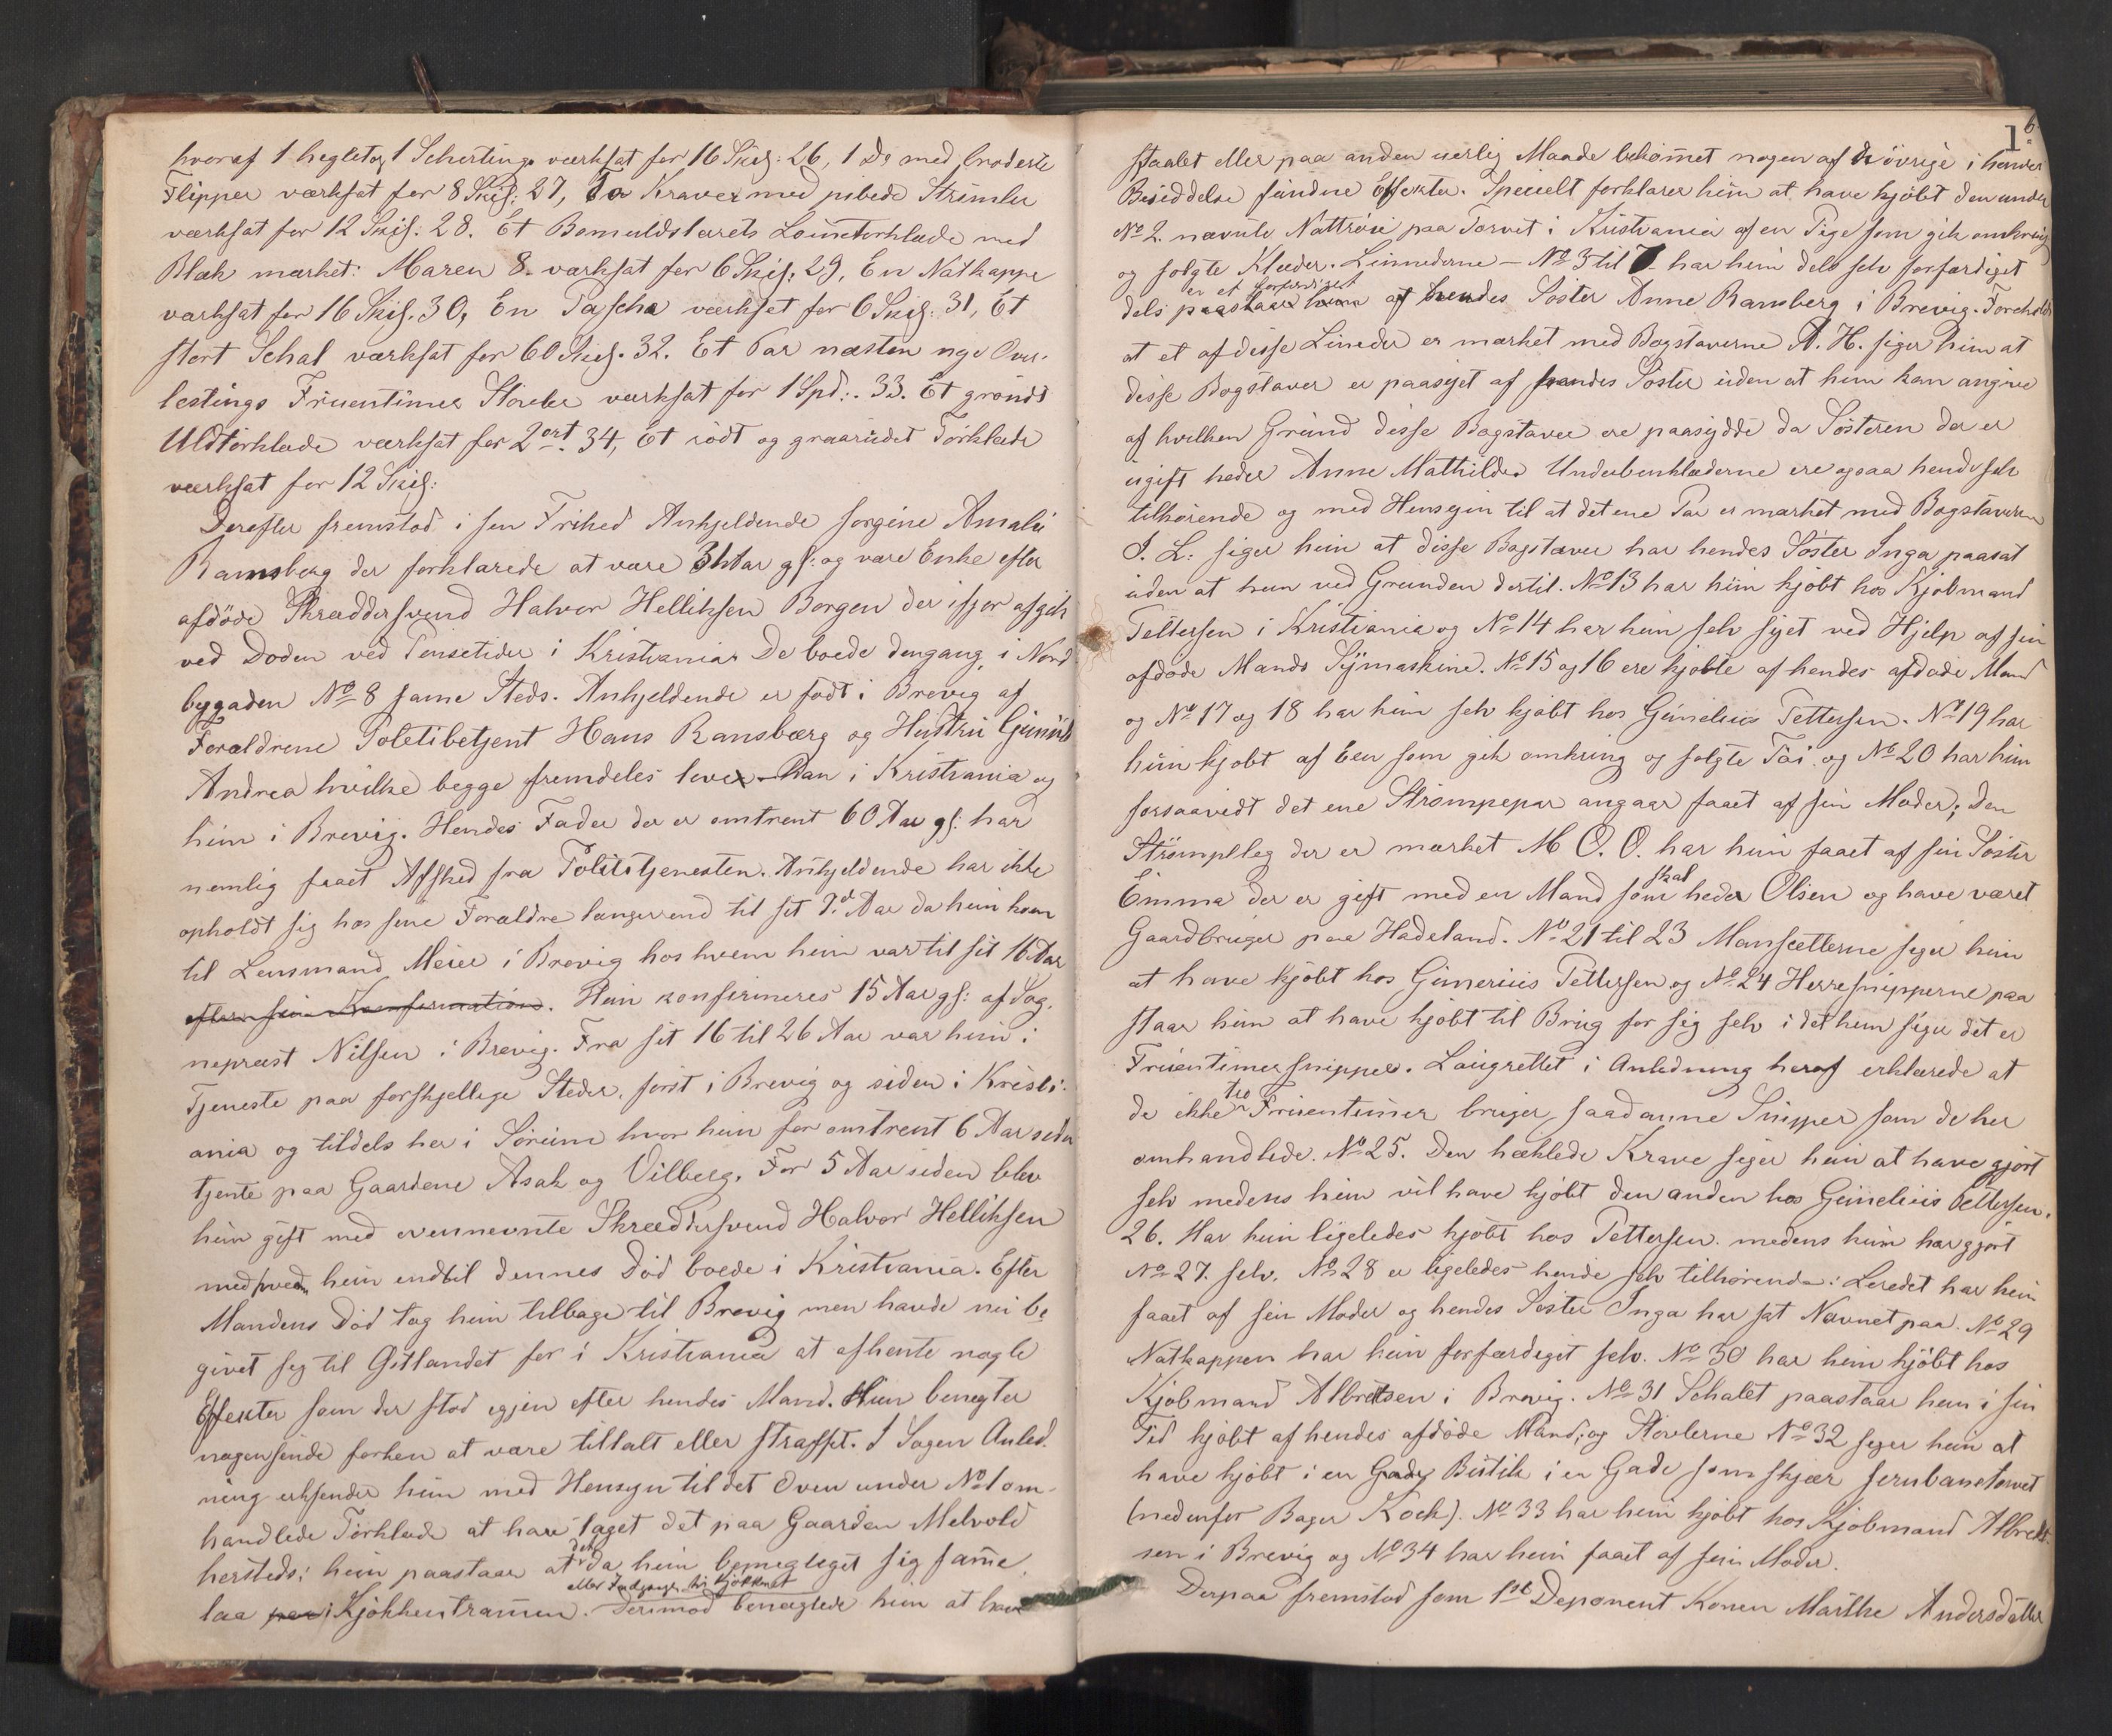 hvoraf 1 heglet og 1 Schertings værdsat for 16 Skil: 26, 1 Do med broderte
Flipper værdsat for 8 Skil: 27, To Kraver med pibede Strimler
værdsat for 12 Skil: 28. Et Bomuldslærets Lommetørklæde med
Blæk mærket: Maren 8. værdsat for 6 Skil: 29, En Natkappe
værdsat for 16 Skil. 30, En Tasche værdsat for 6 Skil: 31, Et
stort Schal værdsat for 60 Skil. 32. Et Par næsten nye Over-
lestings Fruentimer Støvler værdsat for 1 Spd: 33. Et grønt
Uldtørklæde værdsat for 2 ort. 34, Et rødt og graarudet Tørklæde
værdsat for 12 Skil:
Derefter fremstod i sen Frihed Anhjeldende Jorgine Amalie
Ramsberg der forklarede at være 31 Aar gl: og være Enke efter
afdøde Skræddersvend Halvor Helliksen Borgen der ifjor afgik
ved Døden ved Pinsetider i Kristiania. De boede dengang i Nord
bygaden No 8 same Steds. Anhjeldende er født i Brevig af
Forældrene Politibetjent Hans Ransberg og Hustru
Andrea hvilke begge fremdeles lever. Han i Kristiania og
hun i Brevig. Hendes Fader der er omtrent 60 Aar gl: har
nemlig faaet Afsked fra Polititjenesten. Anhjeldende har ikke
opholdt sig hos sine Forældre længer end til sit 7.de Aar da hun kom
til Lensmand Meier i Brevig hos hvem hun var til sit 16 Aar
efter sin Konfirmation. Hun konfirmeres 15 Aar gl: af Sog,
nepræst Nilsen i Brevig. Fra sit 16 til 26 Aar var hun i
Tjeneste paa forskjellige Steder, først i Brevig og siden i Kristi-
ania og tildels her i Sørum hvor hun for omtrent 6 Aar siden
tjente paa Gaardene Asak og Vilberg. For 5 Aar siden blev
hun gift med ovennevnte Skræddersvend Halvor Helliksen
med hvem hun indtil dennes Død boede i Kristiania. Efter
Mandens Død tog hun tilbage til Brevig men havde nu be
givet sig til Østlandet for i Kristiania at afhente nogle
Effekter som der stod igjen efter hendes Mand. Hun benegter
nogensinde forhen at være tiltalt eller straffet. I Sagens Anled-
ning erkjender hun med Hensyn til det oven under No 1 om-
handlede Tørklæde at have taget det paa Gaarden Melvold
hersteds; hun paastaar at det da hun bemegtiget sig same
eller Indgangen til Kjøkkenet
laa paa i Kjøkkentrammen. Derimod benegtede hun at have
1 6
stjaalet eller paa anden uerlig Maade bekommet nogen af de øvrige i hendes
Besiddelse fundne Effekter. Specielt forklarer hun at have kjøbt den under
No 2. nævnte Nattrøie paa Torvet i Kristiania af en Pige som gik omkring
og solgte Klæder. Linnederne – No 3 til 7 har hun dels selv forfærdiget
er et forferdiget
dels paastaar hun af hendes Søster Anne Ransberg i Brevig. Foreholdt
at et af disse Lineder er mærket med Bogstaverne A. H. siger hun at
disse Bogstaver er paasyet af hendes Søster uden at hun kan angive
af hvilken Grund disse Bogstaver ere paasydde da Søsteren der er
ugift heder Anne Mathilde. Underbenklæderne ere ogsaa hende selv
tilhørende og med Hensyn til at det ene Par er mærket med Bogstaverne
I. L. siger hun at disse Bogstaver har hendes Søster Inga paasat
uden at hun ved Grunden dertil. No 13 har hun kjøbt hos Kjøbmand
Pettersen i Kristiania og No 14 har hun selv syet ved Hjelp af sin
afdøde Mands Symaskine. No 15 og 16 ere kjøbte af hendes afdøde Mand
og No 17 og 18 har hun selv kjøbt hos Gunelius Pettersen. No 19 har
hun kjøbt af Een som gik omkring og solgte Tøi og No 20 har hun
forsaavidt det ene Strømpepar angaar faaet af sin Moder; Den
Strømpeleg der er mærket M O. O. har hun faaet af sin Søster
Emma der er gift med en Mand som skal heder Olsen og have været
Gaardbruger paa Hadeland. No 21 til 23 Manscetterne siger hun
at have kjøbt hos Gunerius Pettersen og No 24 Herresnipperne paa
staar hun at have kjøbt til Brug for sig selv i det hun siger det er
Fruentimersnipper. Laugrettet i Anledning heraf erklærede at
de ikke tro Fruentimer bruger saadanne Snipper som de her
omhandlede. No 25. Den heklede Krave siger hun at have gjort
selv medens hun vil have kjøbt den anden hos Gunelius Pettersen.
26. Har hun ligeledes kjøbt hos Pettersen. medens hun har gjort
No 27. selv. No 28 er ligeledes hende selv tilhørende: Leredet har hun
faaet af sin Moder og hendes Søster Inga har sat Navnet paa. No 29
Natkappen har hun forfærdiget selv. No 30 har hun kjøbt hos
Kjøbmand Albretsen i Brevig. No 31 Schalet paastaar hun i sin
Tid kjøbt af hendes afdøde Mand; og Støvlerne No 32 siger hun at
have kjøbt i en Butik i en Gade som skjær Jernbanetorvet
(nedenfor Bager Koch). No 33 har hun kjøbt hos Kjøbmand Albrekt-
sen i Brevig og No 34 har hun faaet af sin Moder.
Derpaa fremstod som 1ste Deponent Konen Marthe Andersdatter